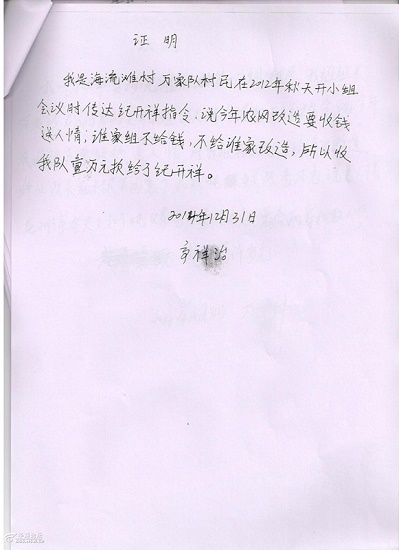 证明
我是海流滩村万家队村民在2012年秋天开小组
会议时传达纪开祥指令,说今年农网改造要收钱
送人情;谁家组不给钱,不给谁家改造,所以收
我队壹万元扒给了纪开祥。
2014年12月31日
祥治